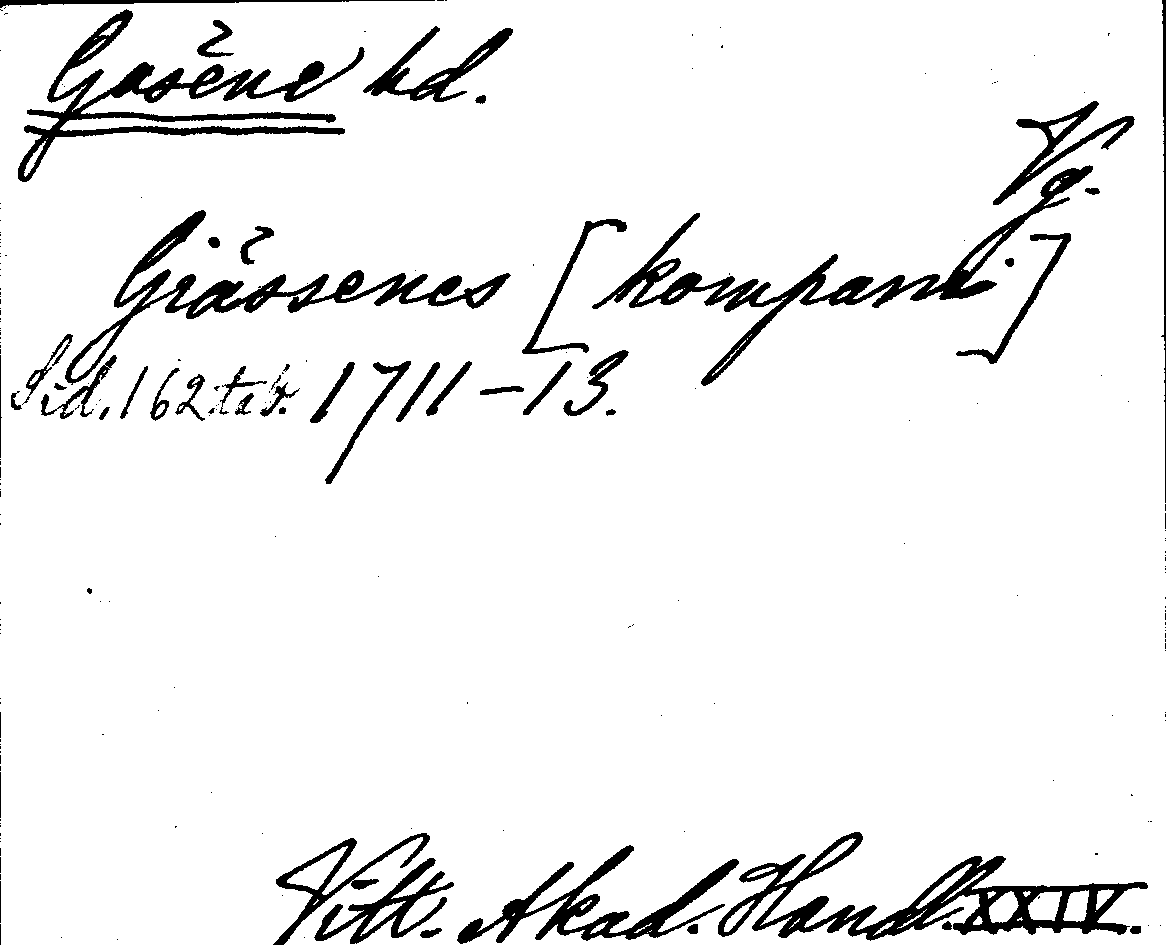 Gåsene hd.
Vg.
Giässenes [kompani]
Sid. 162 tab. 1711–13.
Vitt. Akad. Handl. XXIV.